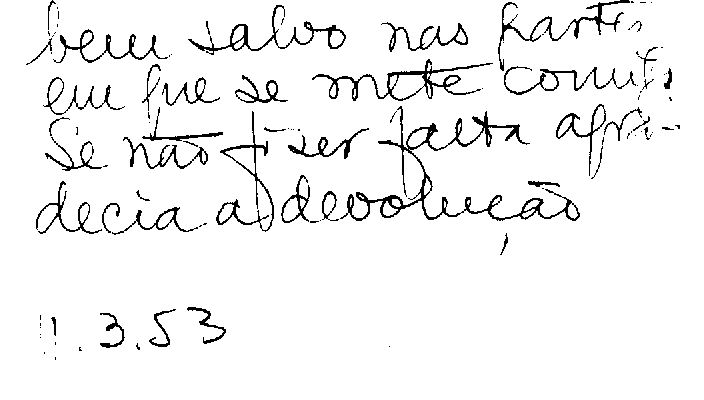 bem salvo nas partes
em que se mete comigo.
Se não fizer falta agra-
decia a devolução
11.3.53